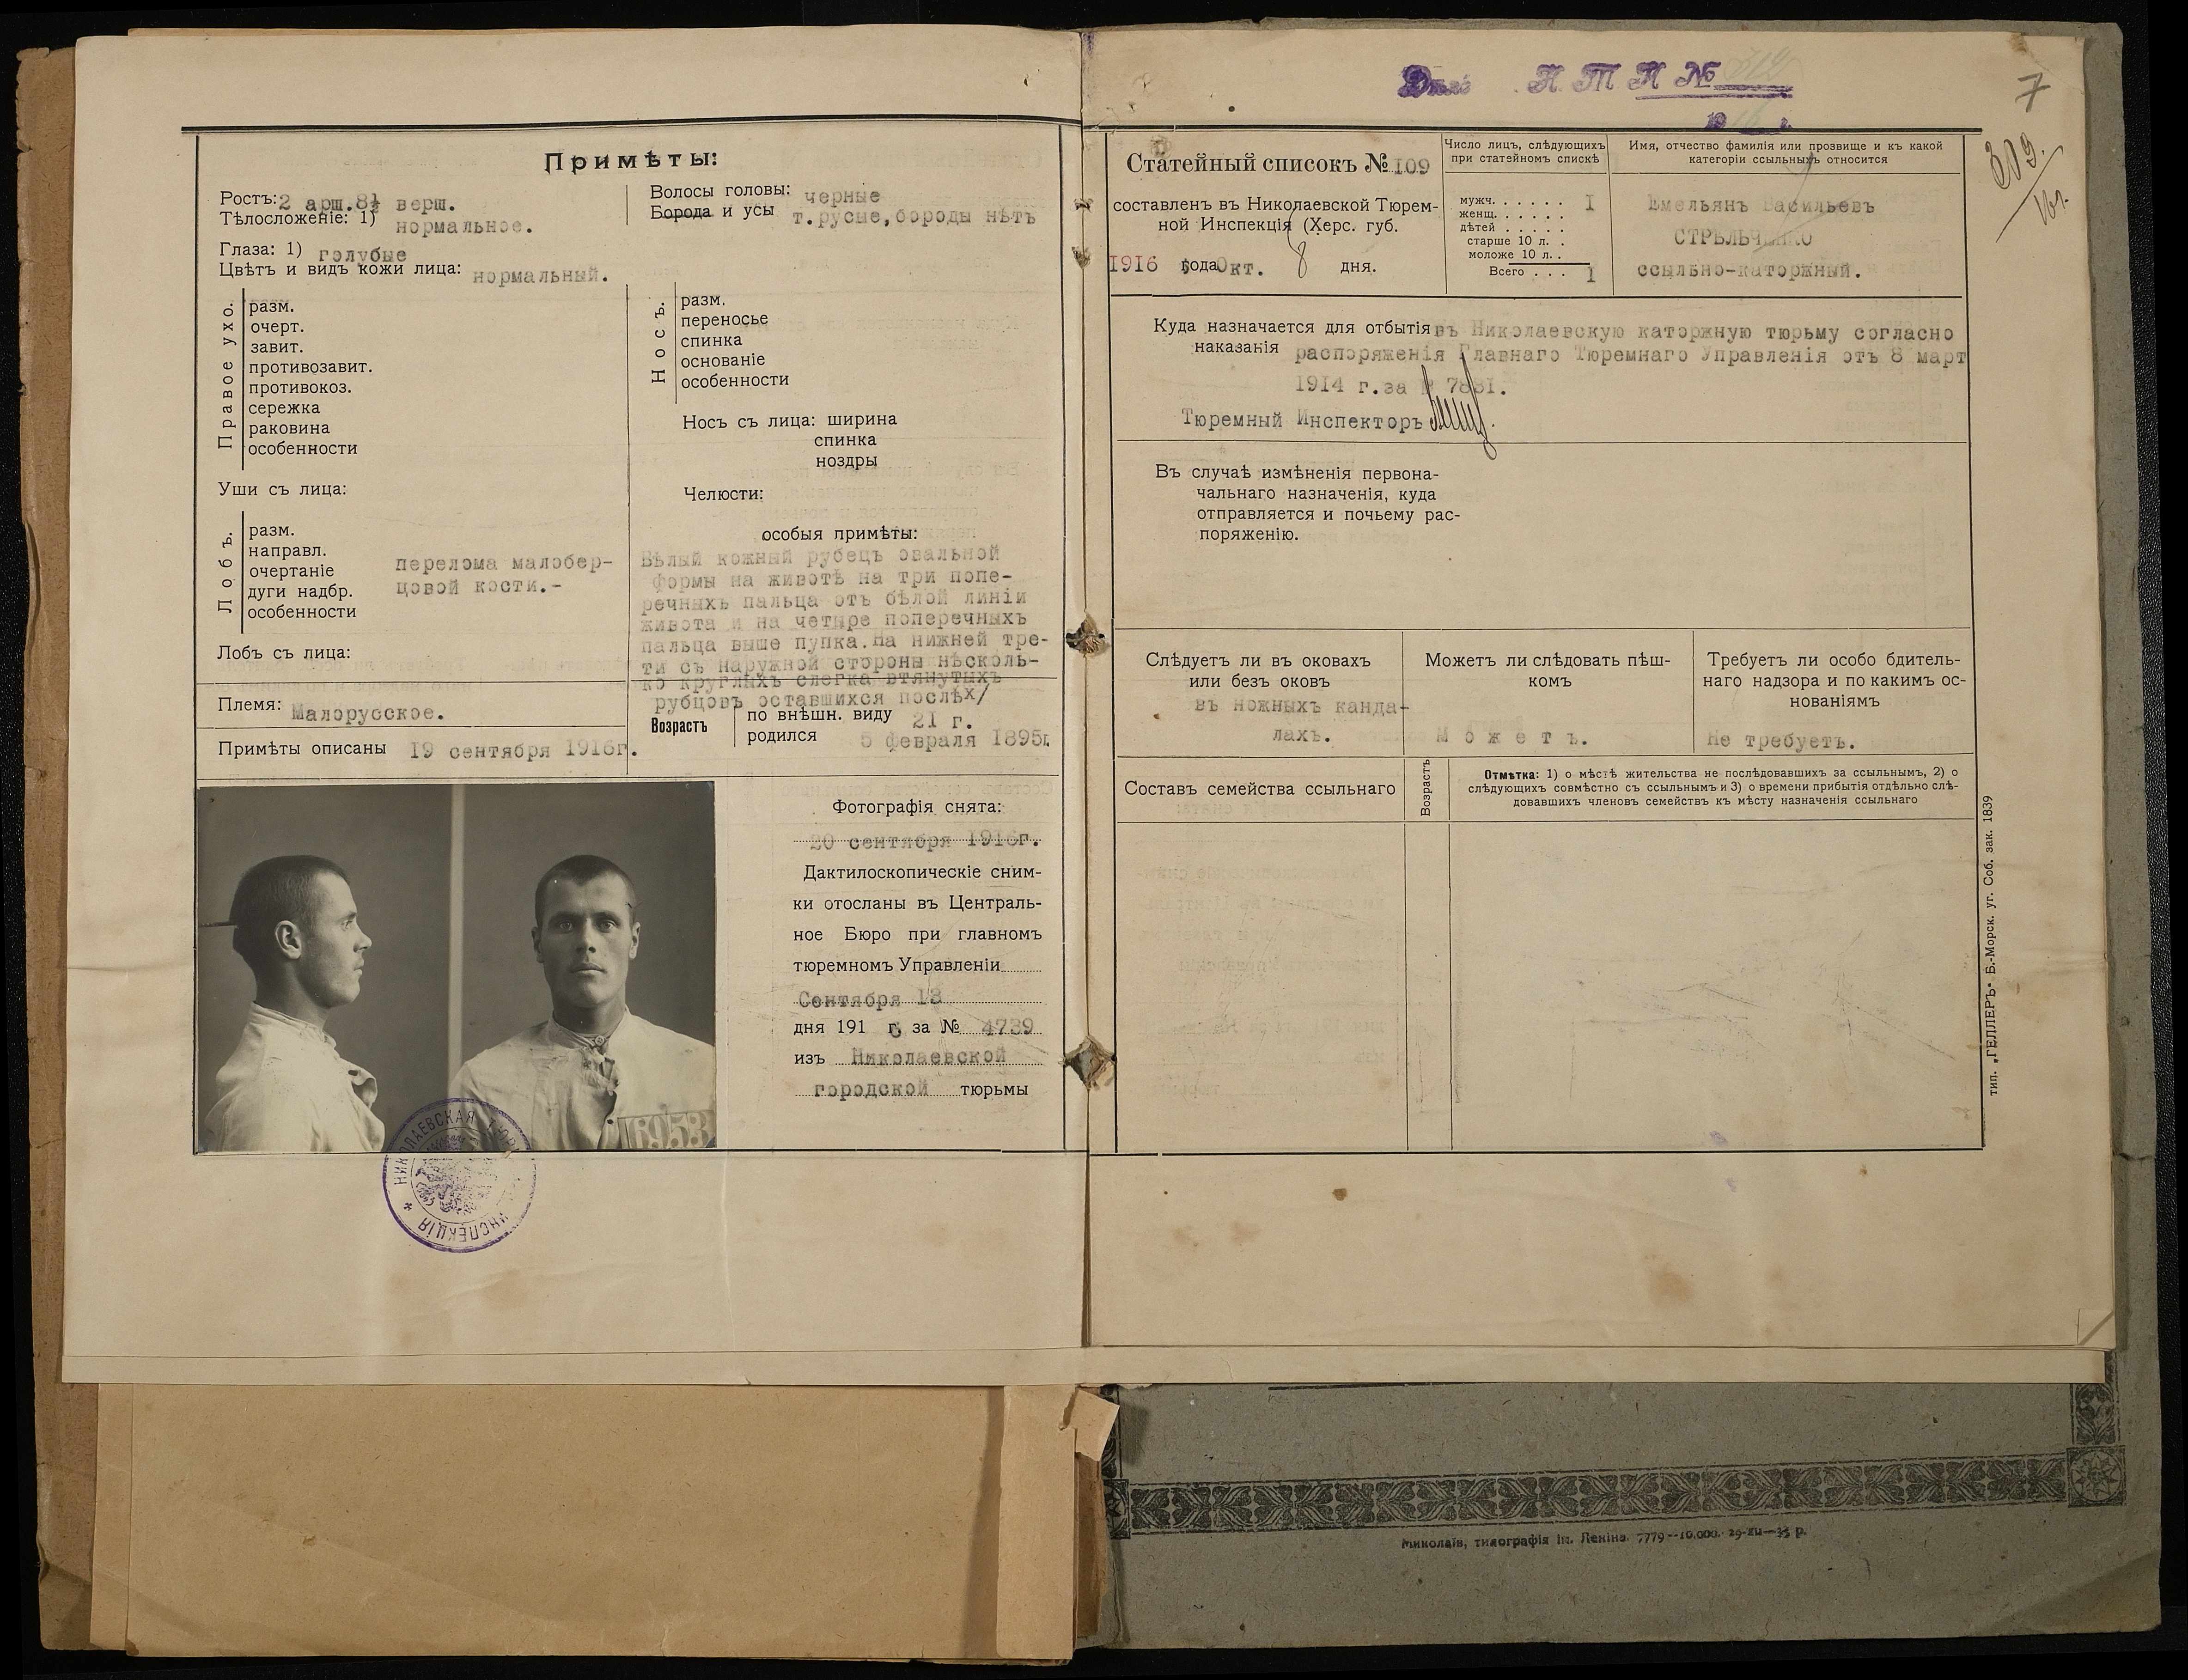 Примѣты:
Ростъ: 2 арш. 8½ верш.
Тѣлосложеніе: 1) нормальное.
Глаза: 1) голубые
Цвѣтъ и видъ кожи лица: нормальный.
Волосы головы: черные
Борода и усы т.русые, бороды нѣтъ
Правое ухо.
разм.
очерт.
завит.
противозавит.
противокоз.
сережка
раковина
особенности
Носъ.
разм.
переносье
спинка
основаніе
особенности
Носъ съ лица: ширина
спинка
ноздры
Уши съ лица:
Челюсти:
Лобъ.
разм.
направл.
очертаніе
дуги надбр.
особенности
перелома малобер-
цовой кости.-
Лобъ съ лица:
особыя примѣты:
Бѣлый кожный рубецъ овальной
формы на животѣ на три попе-
речныхъ пальца отъ бѣлой линіи
живота и на четыре поперечныхъ
пальца выше пупка. На нижней тре-
ти съ наружной стороны нѣсколь-
ко круглыхъ слегка втянутыхъ
рубцовъ оставшихся послѣх/
Племя: Малорусское.
Примѣты описаны 19 сентября 1916г.
Возрастъ
по внѣшн. виду 21 г.
родился 5 февраля 1895г.
Фотографія снята:
20 сентября 1916г.
Дактилоскопическіе сним-
ки отосланы въ Централь-
ное Бюро при главномъ
тюремномъ Управленіи
Сентября 13
дня 191 6 г. за № 4739
изъ Николаевской
городской тюрьмы
16953
НИКОЛАЕВСКАЯ ТЮР
ИНСПЕКЦІЯ
Дѣло Н Т И №
19 г.
7
309
16г.
Статейный списокъ № 109
составленъ въ Николаевской Тюрем-
ной Инспекція (Херс. губ.
1916 года Окт. 8 дня.
Число лицъ, слѣдующихъ
при статейномъ спискѣ
мужч. . . . . . . 1
женщ. . . . . .
дѣтей . . . . .
старше 10 л. . .
моложе 10 л. . .
Всего . . . 1
Имя, отчество фамилія или прозвище и къ какой
категоріи ссыльныхъ относится
Емельянъ Васильевъ
СТРѢЛЬЧЕНКО
ссыльно-каторжный.
Куда назначается для отбытія наказанія въ Николаевскую каторжную тюрьму согласно
распоряженія Главнаго Тюремнаго Управленія отъ 8 март
1914 г. за № 7831.
Тюремный Инспекторъ
Въ случаѣ измѣненія первона-
чальнаго назначенія, куда
отправляется и почьему рас-
поряженію.
Слѣдуетъ ли въ оковахъ
или безъ оковъ
въ ножныхъканда-
лахъ.
Можетъ ли слѣдовать пѣш-
комъ
Можетъ.
Требуетъ ли особо бдитель-
наго надзора и по какимъ ос-
нованіямъ
Не требуетъ.
Составъ семейства ссыльнаго
Возрастъ
Отмѣтка: 1) о мѣстѣ жительства не послѣдовавшихъ за ссыльнымъ, 2) о
слѣдующихъ совмѣстно съ ссыльнымъ и 3) о времени прибытія отдѣльно слѣ-
довавшихъ членовъ семействъ къ мѣсту назначенія ссыльнаго
тип. „ГЕЛЛЕРЪ" Б.-Морск. уг. Соб. зак. 1839
Миколаїв, типографія ім. Леніна. 7779--10.000. 29-XII—35 р.